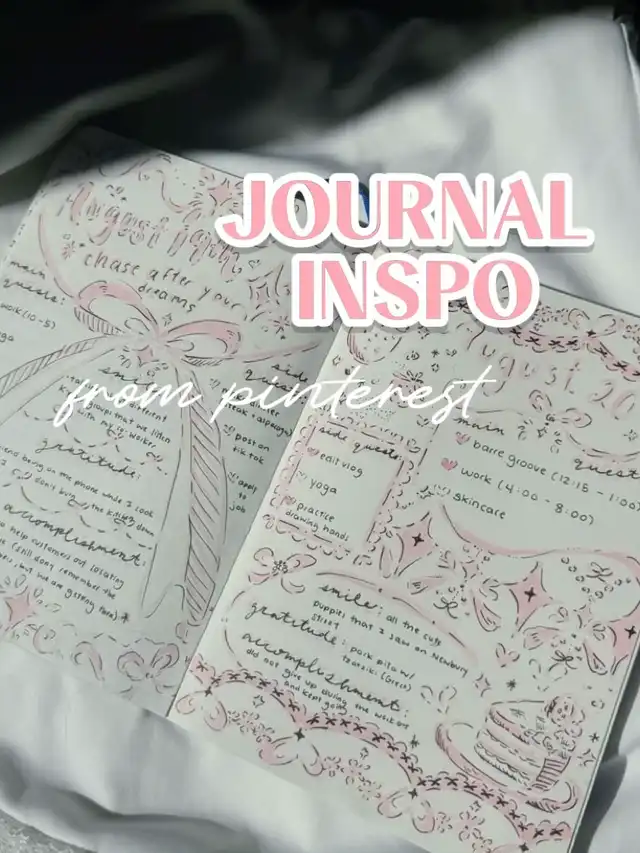 JOURNAL
INSPO
from pinterest
August 19th
chase after your
dreams
main
quests:
work (10-5)
yoga
smile:
different
groups that
with my co-worker
side
post on
tik tok
apply
to
job
gratitude:
being on the phone while I look
I don't burn the kitchen down
accomplishment:
to help customers out locating
(still don't remember the
but we are getting there)
August 20
main
quest
barre groove (12:15 - 1:00
work (4:00 - 8:00)
skincare
side quest:
edit vlog
yoga
practice
drawing hands
smile: all the cute
puppies that I saw on Newbury
street
gratitude: pork pita w/
tzatziki (Greco)
accomplishment:
did not give up during the workout
and kept going